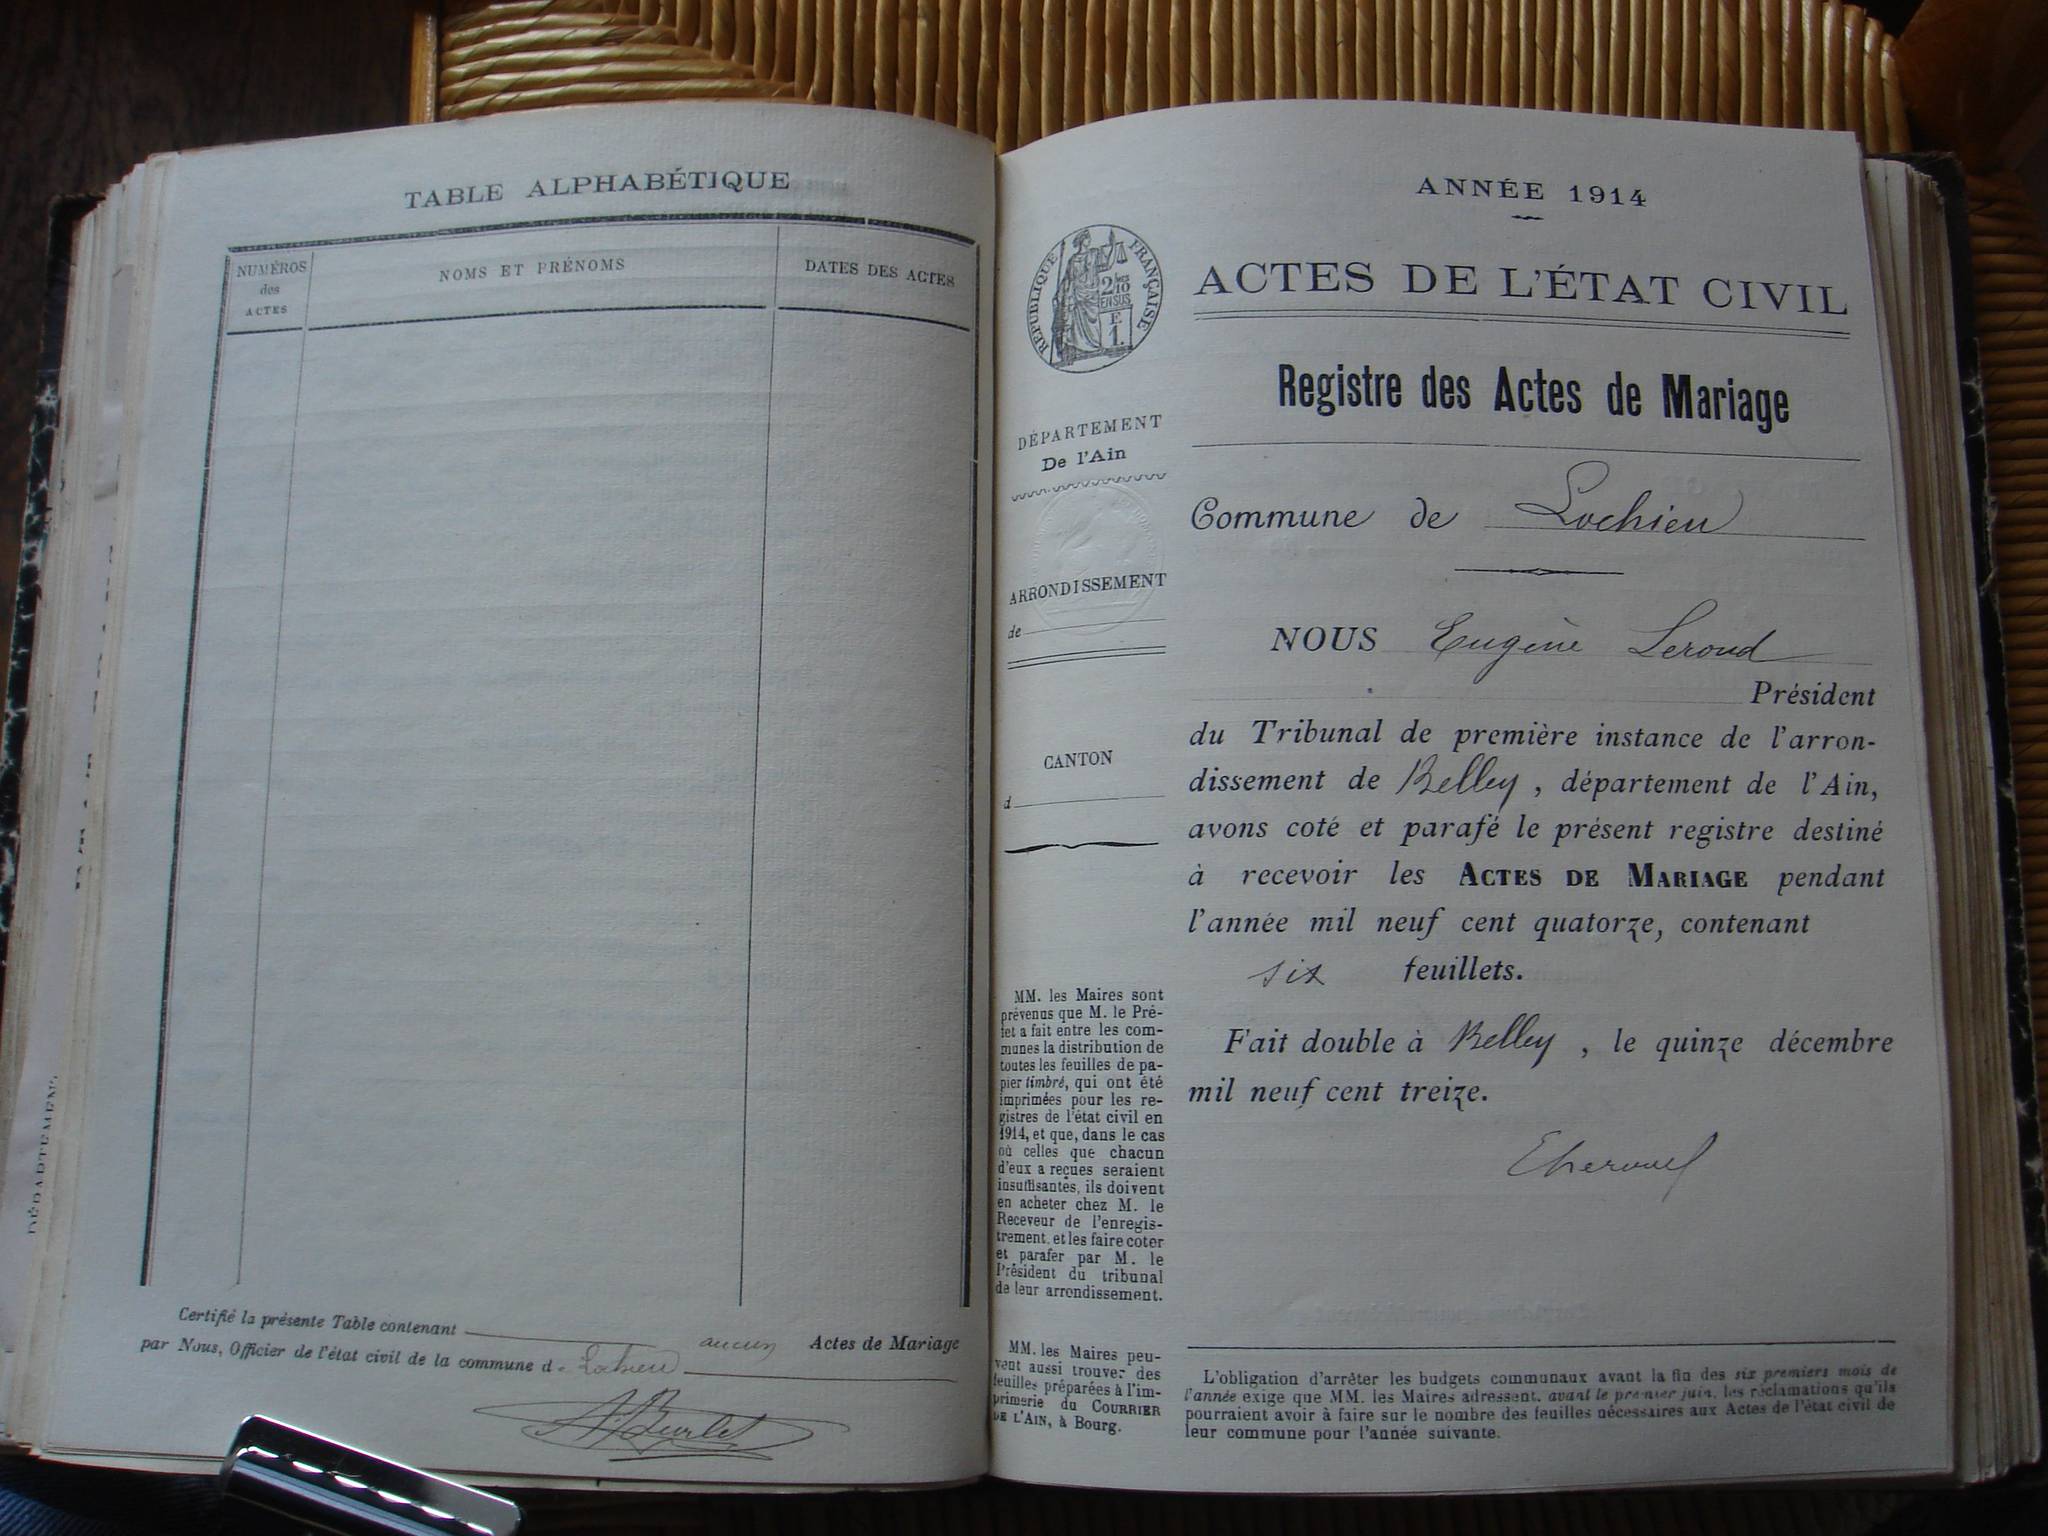 TABLE ALPHABÉTIQUE
NUMÉROS
des
ACTES
NOMS ET PRÉNOMS
DATES DES ACTES
Certifié la présente Table contenant aucun Actes de Mariage
par Nous, Officier de l'état civil de la commune d
ANNÉE 1914
ACTES DE L'ÉTAT CIVIL
Registre des Actes de Mariage
RÉPUBLIQUE FRANÇAISE
2/10
EN SUS
E
1.
DÉPARTEMENT
De l'Ain
ARRONDISSEMENT
de
CANTON
d
MM. les Maires sont
prévenus que M. le Pré-
fet a fait entre les com-
munes la distribution de
toutes les feuilles de pa-
pier timbré, qui ont été
imprimées pour les re-
gistres de l'état civil en
1914, et que, dans le cas
où celles que chacun
d'eux a reçues seraient
insuffisantes, ils doivent
en acheter chez M. le
Receveur de l'enregis-
trement, et les faire coter
et parafer par M. le
Président du tribunal
de leur arrondissement.
MM. les Maires peu-
vent aussi trouver des
feuilles préparées à l'im-
primerie du COURRIER
DE L'AIN, à Bourg.
Commune de Lochieu
NOUS Eugène Leroud
Président
du Tribunal de première instance de l'arron-
dissement de Belley, département de l'Ain,
avons coté et parafé le présent registre destiné
à recevoir les ACTES DE MARIAGE pendant
l'année mil neuf cent quatorze, contenant
six feuillets.
Fait double à Belley, le quinze décembre
mil neuf cent treize.
L'obligation d'arrêter les budgets communaux avant la fin des six premiers mois de
l'année exige que MM. les Maires adressent, avant le premier juin, les réclamations qu'ils
pourraient avoir à faire sur le nombre des feuilles nécessaires aux Actes de l'état civil de
leur commune pour l'année suivante.